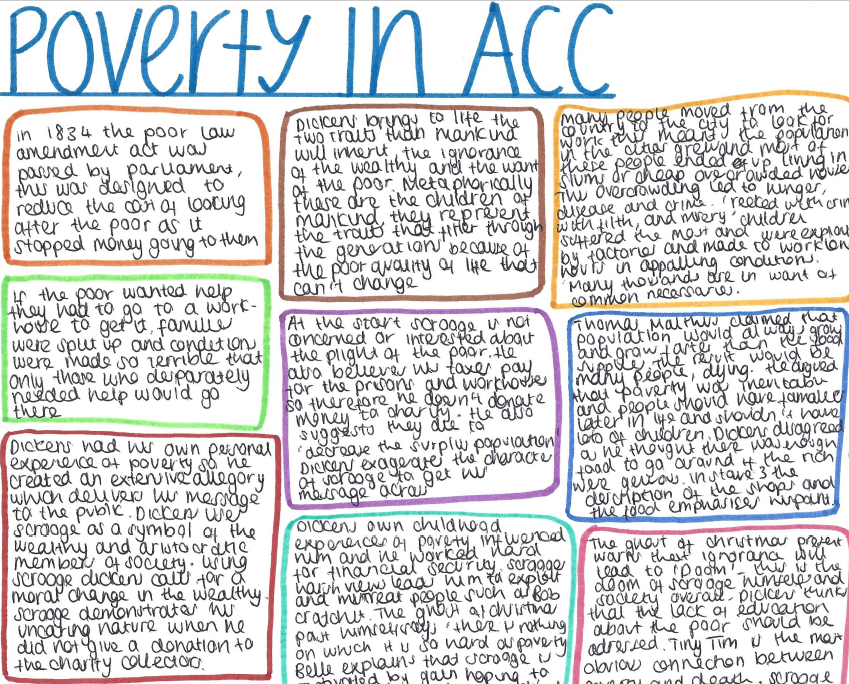 Poverty in ACC
in 1834 the poor law
amendment act was
passed by parliament,
this was designed to
reduce the cost of looking
after the poor as it
stopped money going to them
If the poor wanted help
they had to go to a work-
house to get it, families
were split up and conditions
were made so terrible that
only those who desparately
needed help would go
there
Dickens had his own personal
experience of poverty so he
created an extensive allegory
which delivers his message
to the public. Dickens uses
scrooge as a symbol of the
wealthy and aristocratic
members of society. using
scrooge dickens calls for a
moral change in the wealthy.
scrooge demonstrates his
uncaring nature when he
did not give a donation to
the charity collector.
Dickens brings to life the
two traits than mankind
will inherit, the ignorance
of the wealthy and the want
of the poor. Metaphorically
these are the children of
mankind they represent
the traits that filter through
the generations because of
the poor quality of life that
can't change
At the start scrooge is not
concerned or interested about
the plight of the poor. He
also believes his taxes pay
for the prisons and workhouses
so therefore he doesn't donate
money to charity. He also
suggests they die to
'decrease the surplus population'
Dickens exagerates the character
of scrooge to get his
message across
Dickens own childhood
experiences of poverty influenced
him and he worked hard
for financial security. scrooges
harsh view leads him to exploit
and mistreat people such as Bob
cratchit. The ghost of christmas
past himself says 'there is nothing
on which it is so hard as poverty
Belle explains that scrooge is
motivated by gain hoping to
many people moved from the
country to the city to look for
work this meant the population
in the cities grew and most of
these people ended up living in
slums or cheap overcrowded houses
This overcrowding led to hunger,
disease and crime. 'reeked with crime
with filth, and misery' children
suffered the most and were exploited
by factories and made to work long
hours in appalling conditions.
'Many thousands are in want of
common necessaries.
Thomas Malthus claimed that
population would always grow
and grow faster than the food
supplies, the result would be
many people, dying. He argued
that poverty was inevitable
and people should have families
later in life and shouldn't have
lots of children. Dickens disagreed
as he thought there was enough
food to go around if the rich
were generous. in stave 3 the
description of the shops and
the food emphasises his point.
The ghost of christmas present
warns that ignorance will
lead to 'Doom' - this is the
doom of scrooge himself and
society overall. Dickens thinks
that the lack of education
about the poor should be
adressed. Tiny Tim is the most
obvious connection between
poverty and death. scrooge